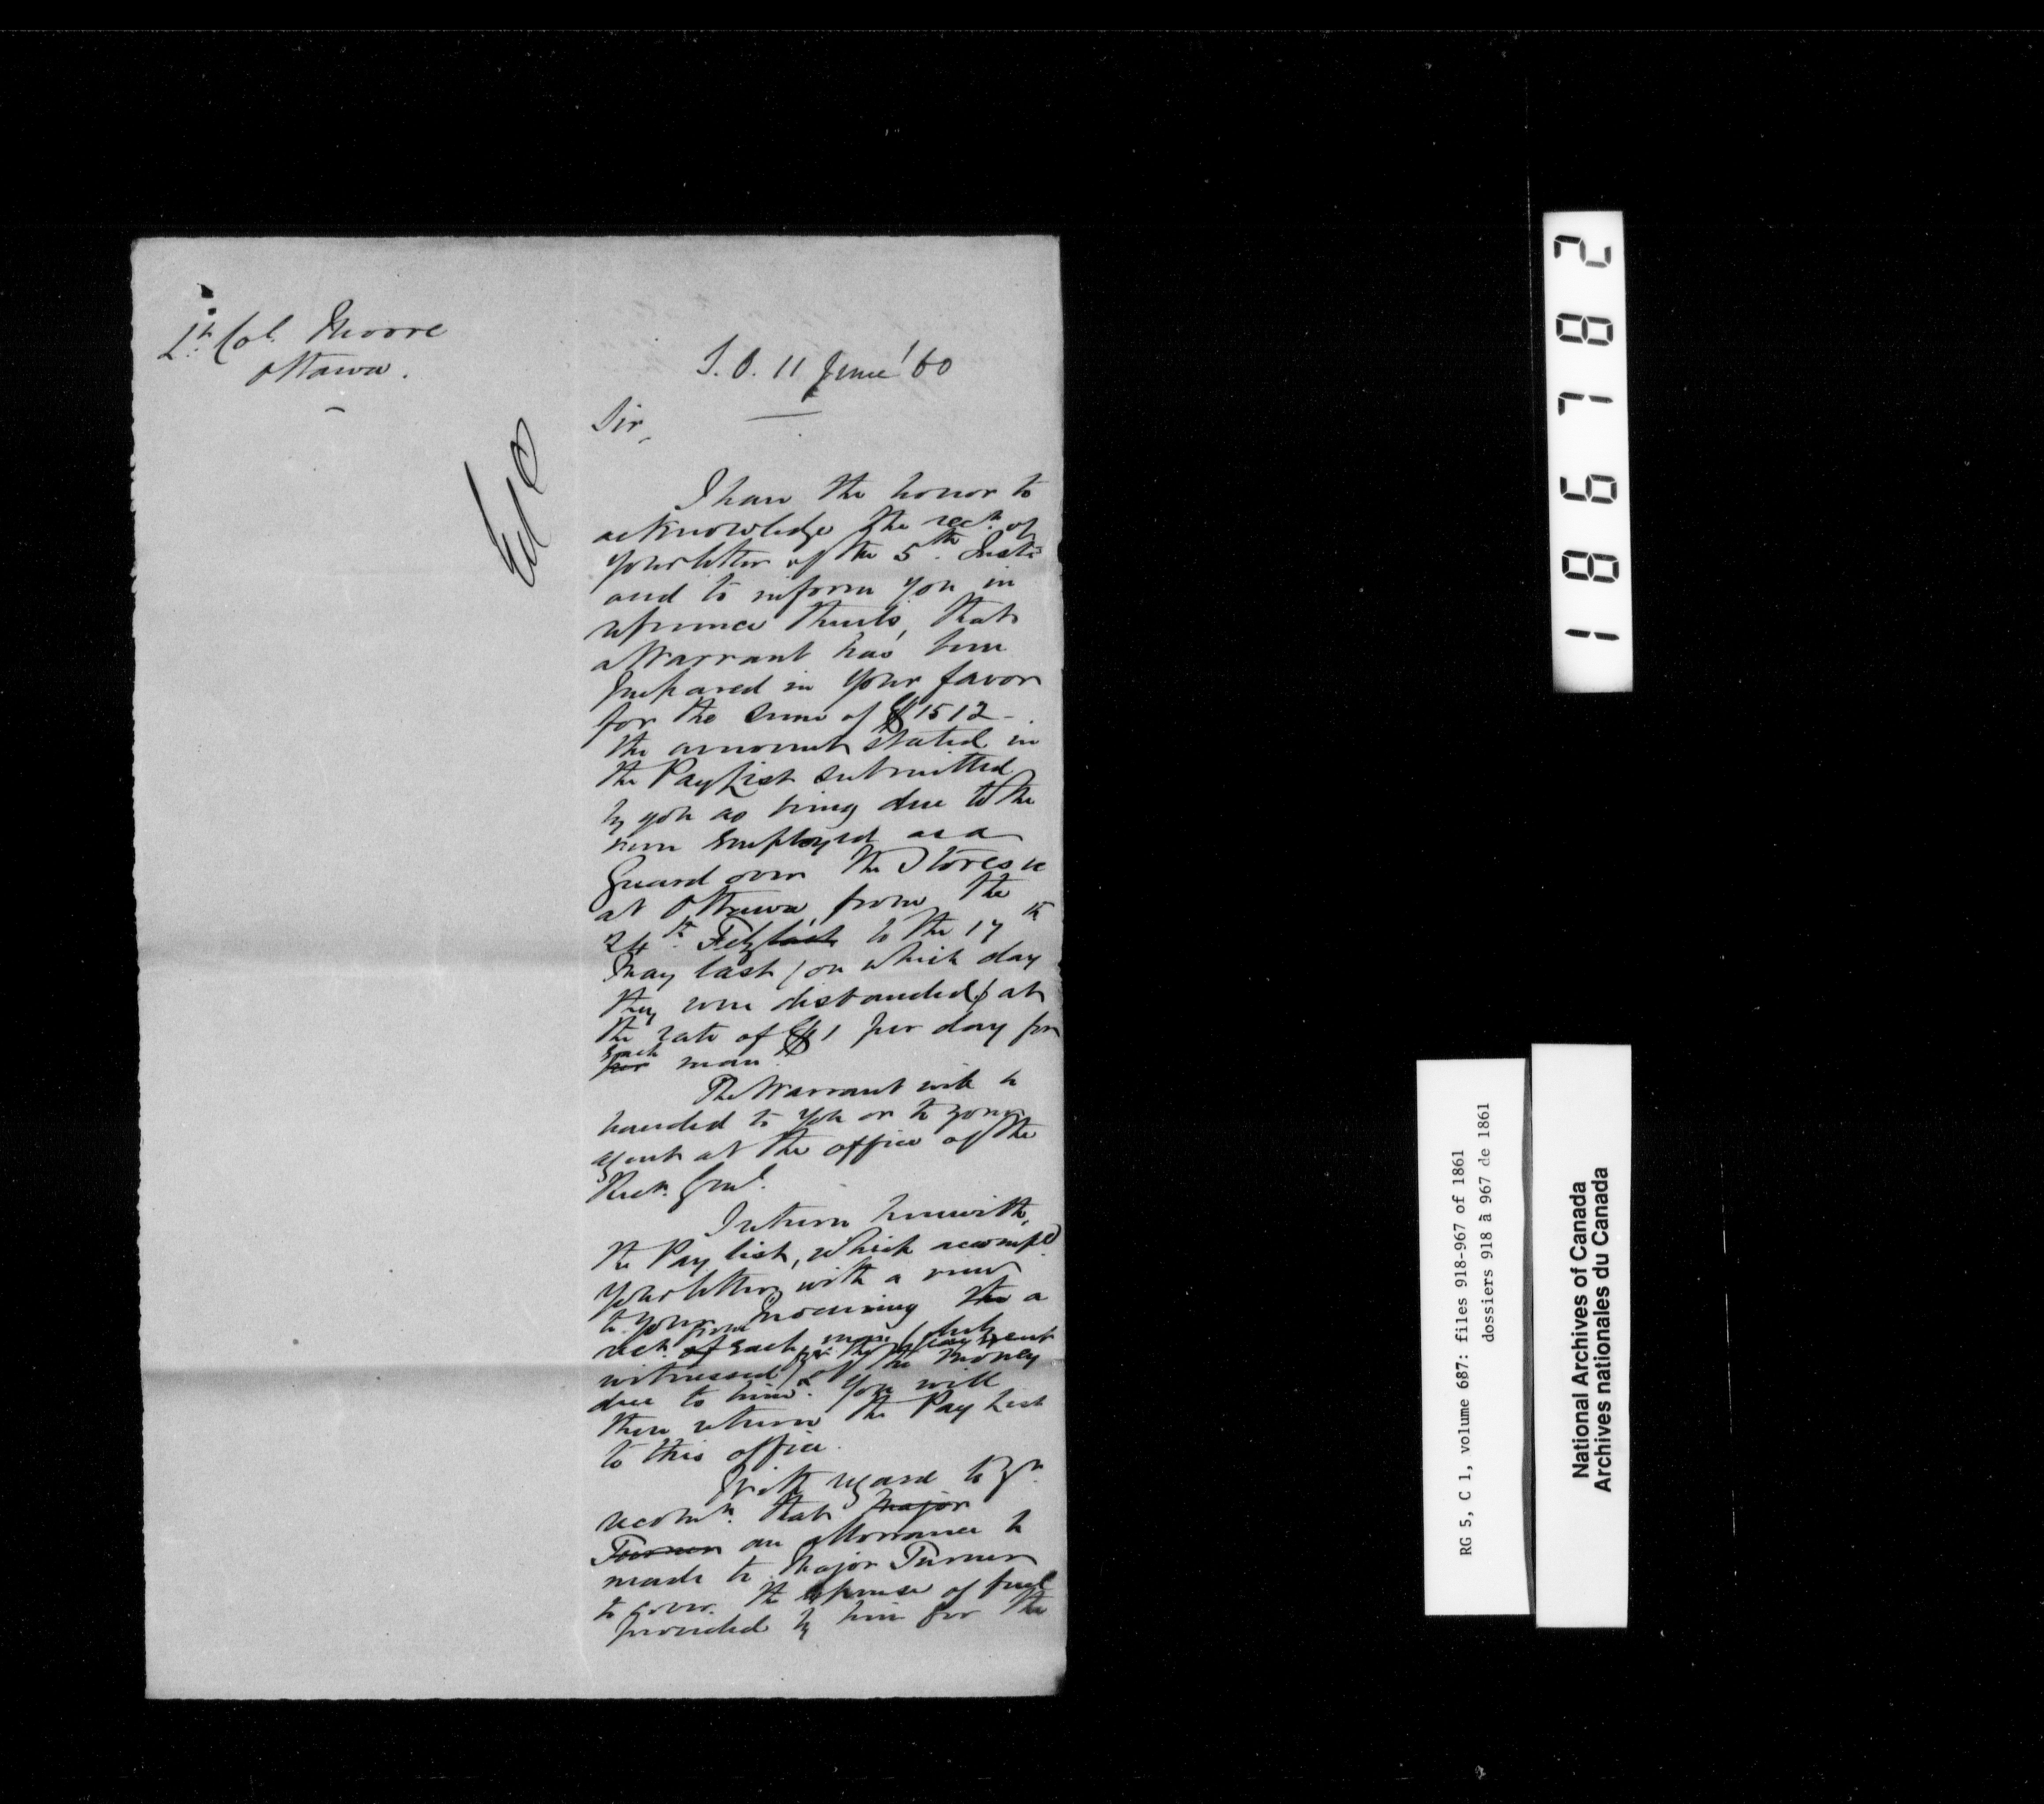 Lt. Col. Moore
Ottawa.
S.O. 11 June '60
Sir,
I have the honor to
acknowledge the rect. of
your letter of the 5th. Inst.
and to inform you in
reference thereto, that
a Warrant has been
prepared in your favor
for the sum of $1512 -
the amount stated in
the Pay List submitted
by you as being due to the
men employed as a
Guard over the Stores
at Ottawa, from the
24th. Feby last to the 17th
May last (on which day
they were disbanded) at
the rate of $1 per day for
each
per man.
The Warrant will be
handed to you or to your
agent at the office of the
Recr. Genl.
I return herewith,
the Pay list, which accompd
your letter, with a view
to your procuring the a
rect. of from each man (duly
witnessed) for the payment of the money
due to him. You will
then return the Pay List
to this office.
With regard to yr.
recomn. that Major
Turner an allowance be
made to Major Turner
to cover the expense of fuel
provided by him for the
186782
RG 5, C 1, volume 687: files 918-967 of 1861
dossiers 918 à 967 de 1861
National Archives of Canada
Archives nationales du Canada